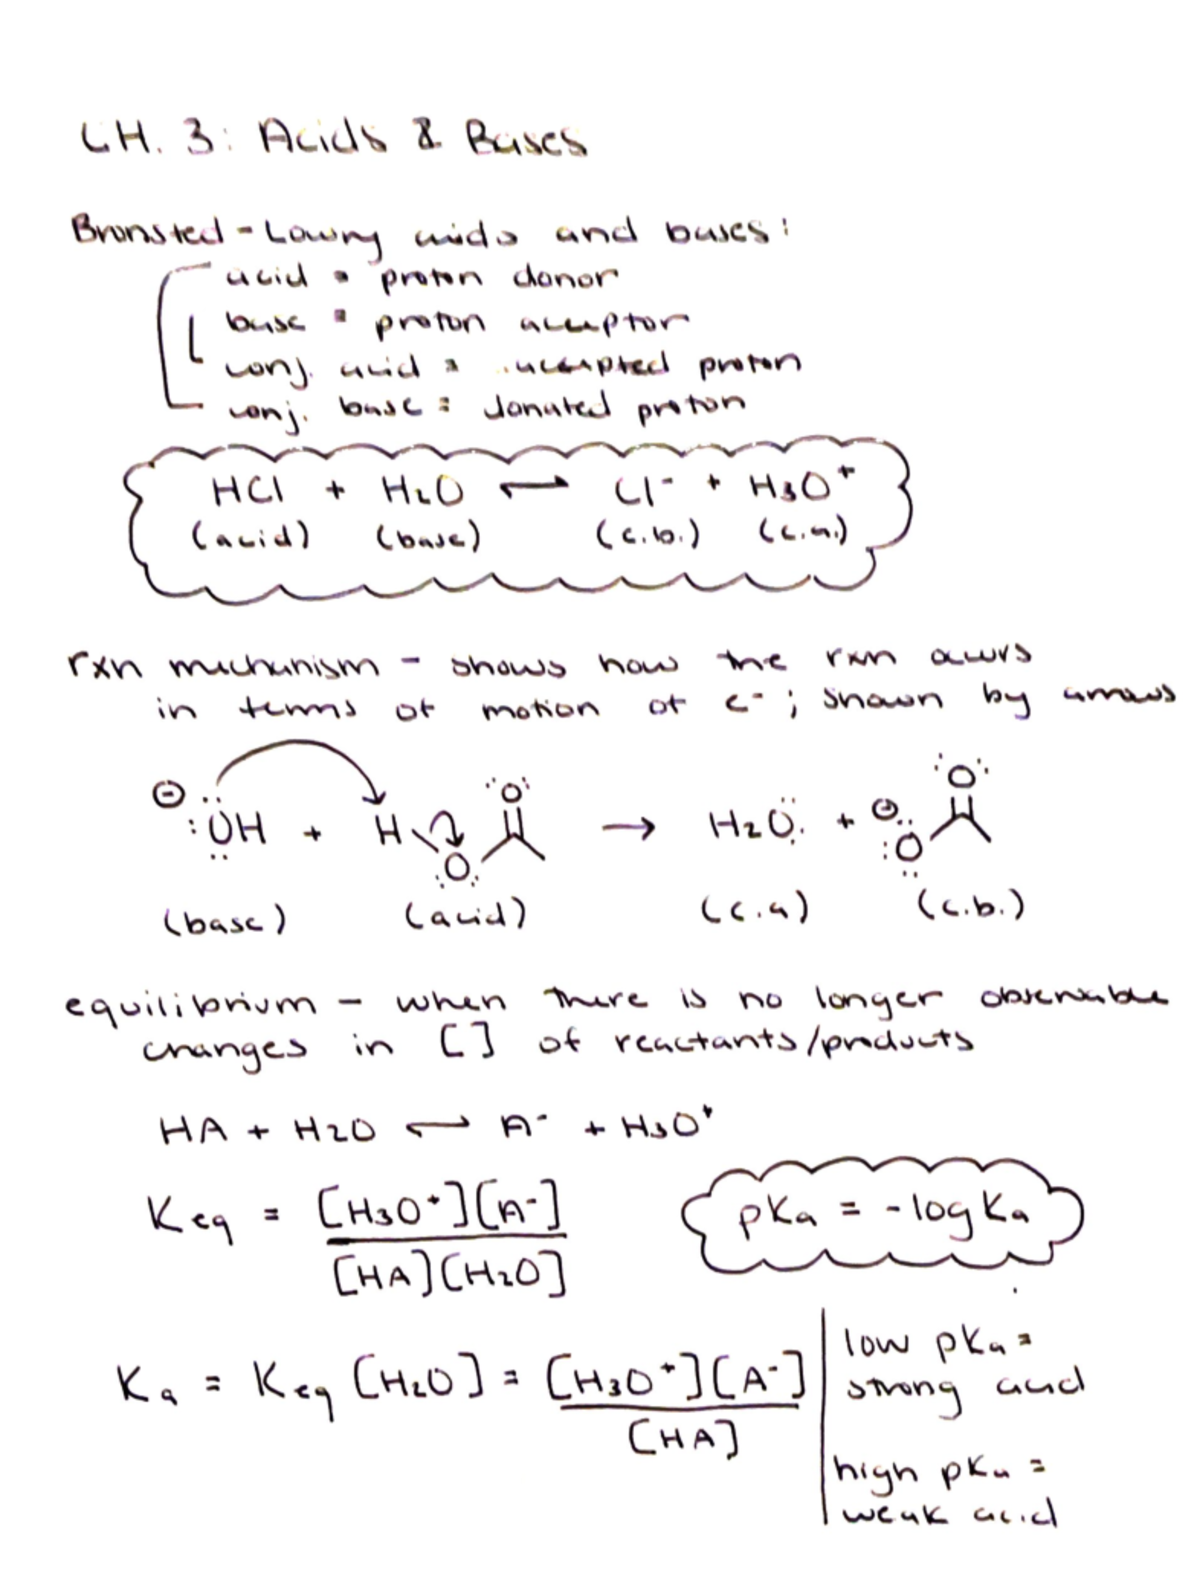 CH. 3: Acids & Bases
Bronsted-Lowry acids and bases:
acid = proton donor
base = proton acceptor
conj. acid = accepted proton
conj. base = donated proton
HCl + H₂O ⇌ Cl⁻ + H₃O⁺
(acid) (base) (c.b.) (c.a.)
rxn mechanism - shows how the rxn occurs
in terms of motion of e⁻; shown by arrows
⊖ :ÖH + H O O → H₂O: + ⊖ :O O
(base) (acid) (c.a) (c.b.)
equilibrium - when there is no longer observable
changes in [] of reactants/products
HA + H₂O ⇌ A⁻ + H₃O⁺
Keq = [H₃O⁺][A⁻] / [HA][H₂O]
pKa = -log Ka
Ka = Keq [H₂O] = [H₃O⁺][A⁻] / [HA]
low pKa =
strong acid
high pKa =
weak acid